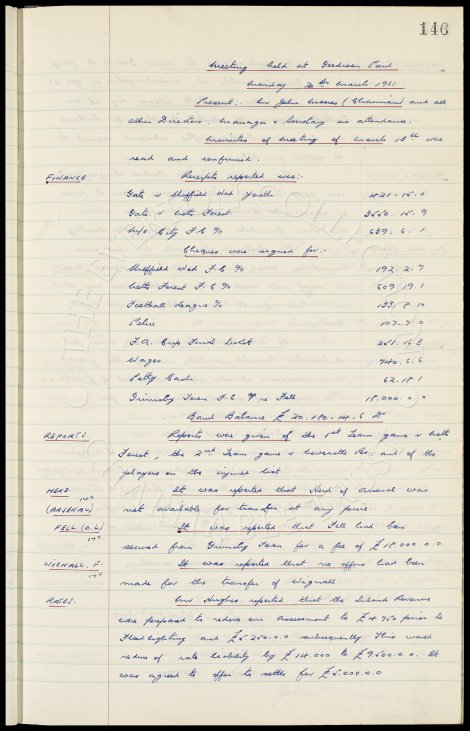 146
Meeting held at Goodison Park
Monday 20th March 1961.
Present:- Mr John Moores (Chairman) and all
other Directors. Manager & Secretary in attendance.
Minutes of Meeting of March 13th were
read and confirmed.
FINANCE Receipts reported were:-
Gate v Sheffield Wed Youth 421. 15. 0
Gate v Notts Forest 3550. 15. 9
M/c City F.C. % 639. 6. 1
Cheques were signed for:-
Sheffield Wed F.C % 192. 2. 7
Notts Forest F.C % 609. 19. 1
Football League % 133. 8. 10
Police 107. 7. 0
F.A. Cup Final tickets 251. 15. 3
Wages 740. 6. 6
Petty Cash 62. 18. 1
Grimsby Town F.C. re Fell 18,000. 0. 0
Bank Balance £ 20.180. 14. 6 Dr
REPORTS. Reports were given of the 1st Team game v Notts
Forest, the 2nd Team game v Newcastle Res. and of the
players on the injured list.
HERD. It was reported that Herd of Arsenal was
(ARSENAL) not available for transfer at any price.
FELL. (O.L) It was reported that Fell had been
secured from Grimsby Town for a fee of £18,000. 0. 0
WIGNALL. F. It was reported that no offers had been
made for the transfer of Wignall.
RATES. Mr Hughes reported that the Inland Revenue
were prepared to reduce our assessment to £4950 prior to
Floodlighting and £5.250. 0. 0 subsequently. This would
reduce our rate liability by £14.000 to £9,500. 0. 0. It
was agreed to offer to settle for £5.000. 0. 0